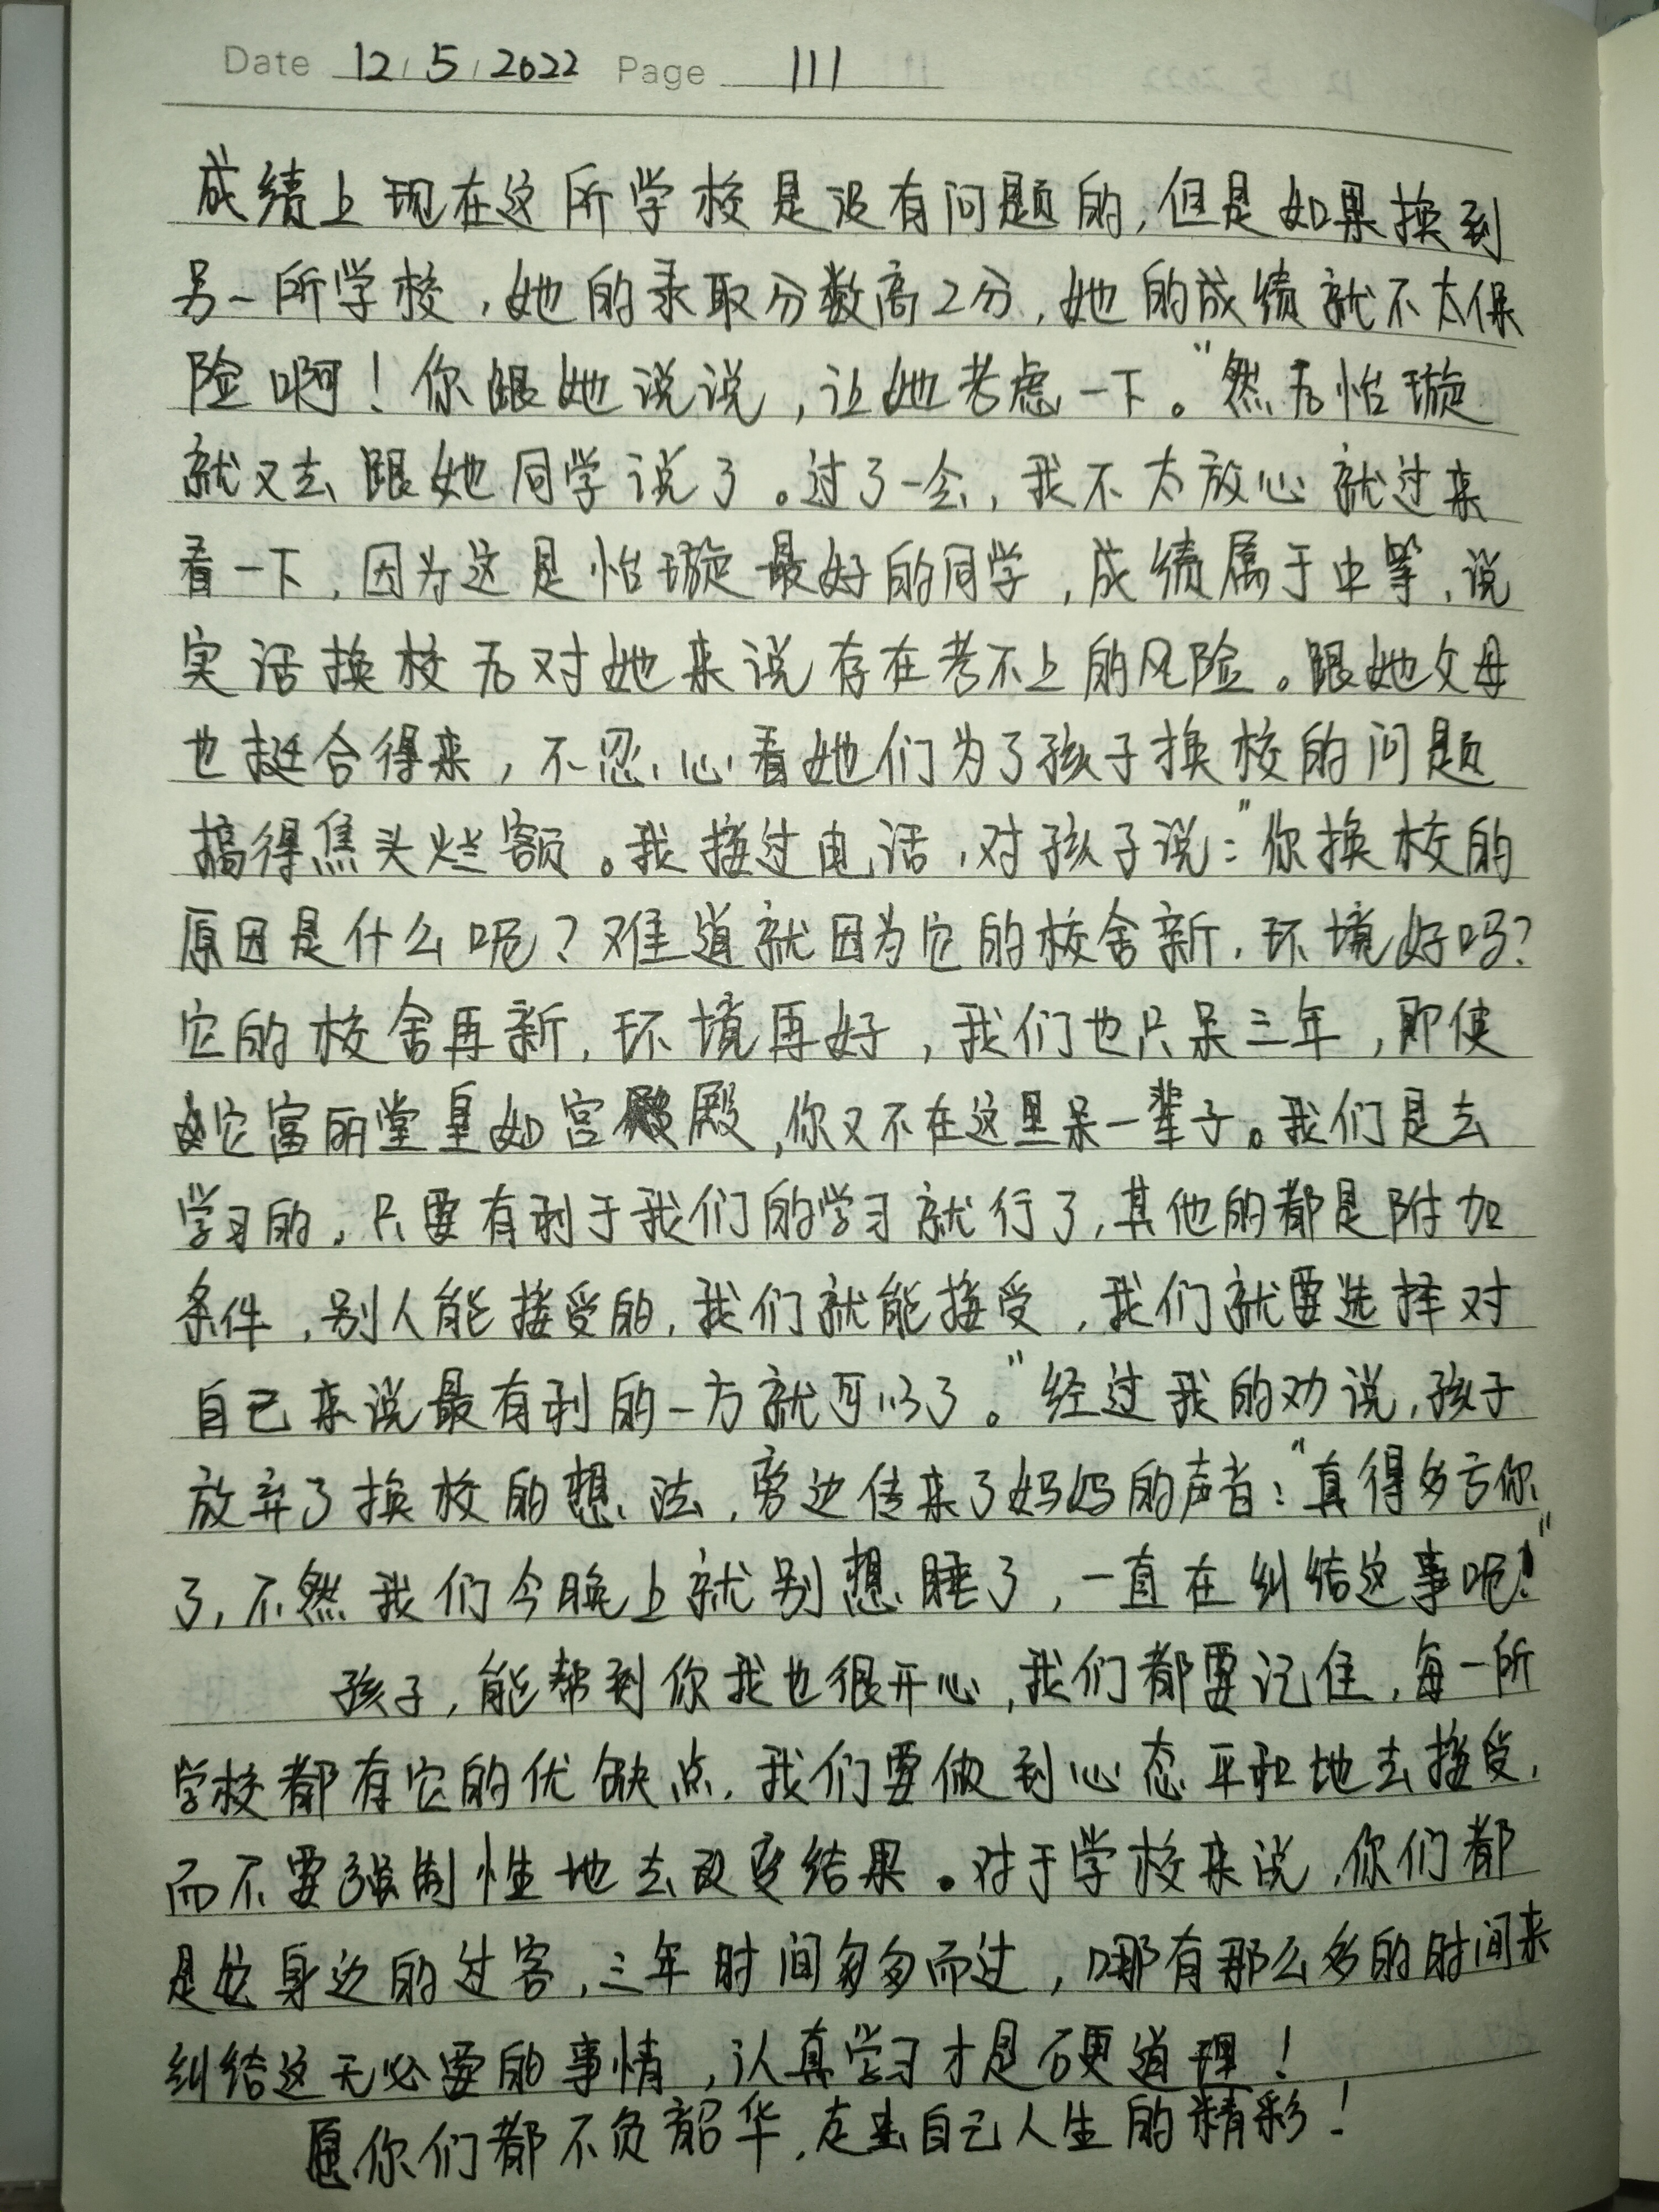 Date 12/5/2022 Page 111
成绩上现在这所学校是没有问题的,但是如果换到
另一所学校,她的录取分数高2分,她的成绩就不太保
险啊!你跟她说说,让她考虑一下。"然后怡璇
就又去跟她同学说了。过了一会,我不太放心就过来
看一下,因为这是怡璇最好的同学,成绩属于中等,说
实话换校后对她来说存在考不上的风险。跟她父母
也挺合得来,不忍心看她们为了孩子换校的问题
搞得焦头烂额。我接过电话,对孩子说:"你换校的
原因是什么呢?难道就因为它的校舍新,环境好吗?
它的校舍再新,环境再好,我们也只呆三年,即使
它富丽堂皇如宫殿,你又不在这里呆一辈子。我们是去
学习的,只要有利于我们的学习就行了,其他的都是附加
条件,别人能接受的,我们就能接受,我们就要选择对
自己来说最有利的一方就可以了。"经过我的劝说,孩子
放弃了换校的想法,旁边传来了妈妈的声音:"真得多亏你
了,不然我们今晚上就别想睡了,一直在纠结这事呢!"
孩子,能帮到你我也很开心,我们都要记住,每一所
学校都有它的优缺点,我们要做到心态平和地去接受,
而不要强制性地去改变结果。对于学校来说,你们都
是它身边的过客,三年时间匆匆而过,哪有那么多的时间来
纠结这无必要的事情,认真学习才是硬道理!
愿你们都不负韶华,走出自己人生的精彩!